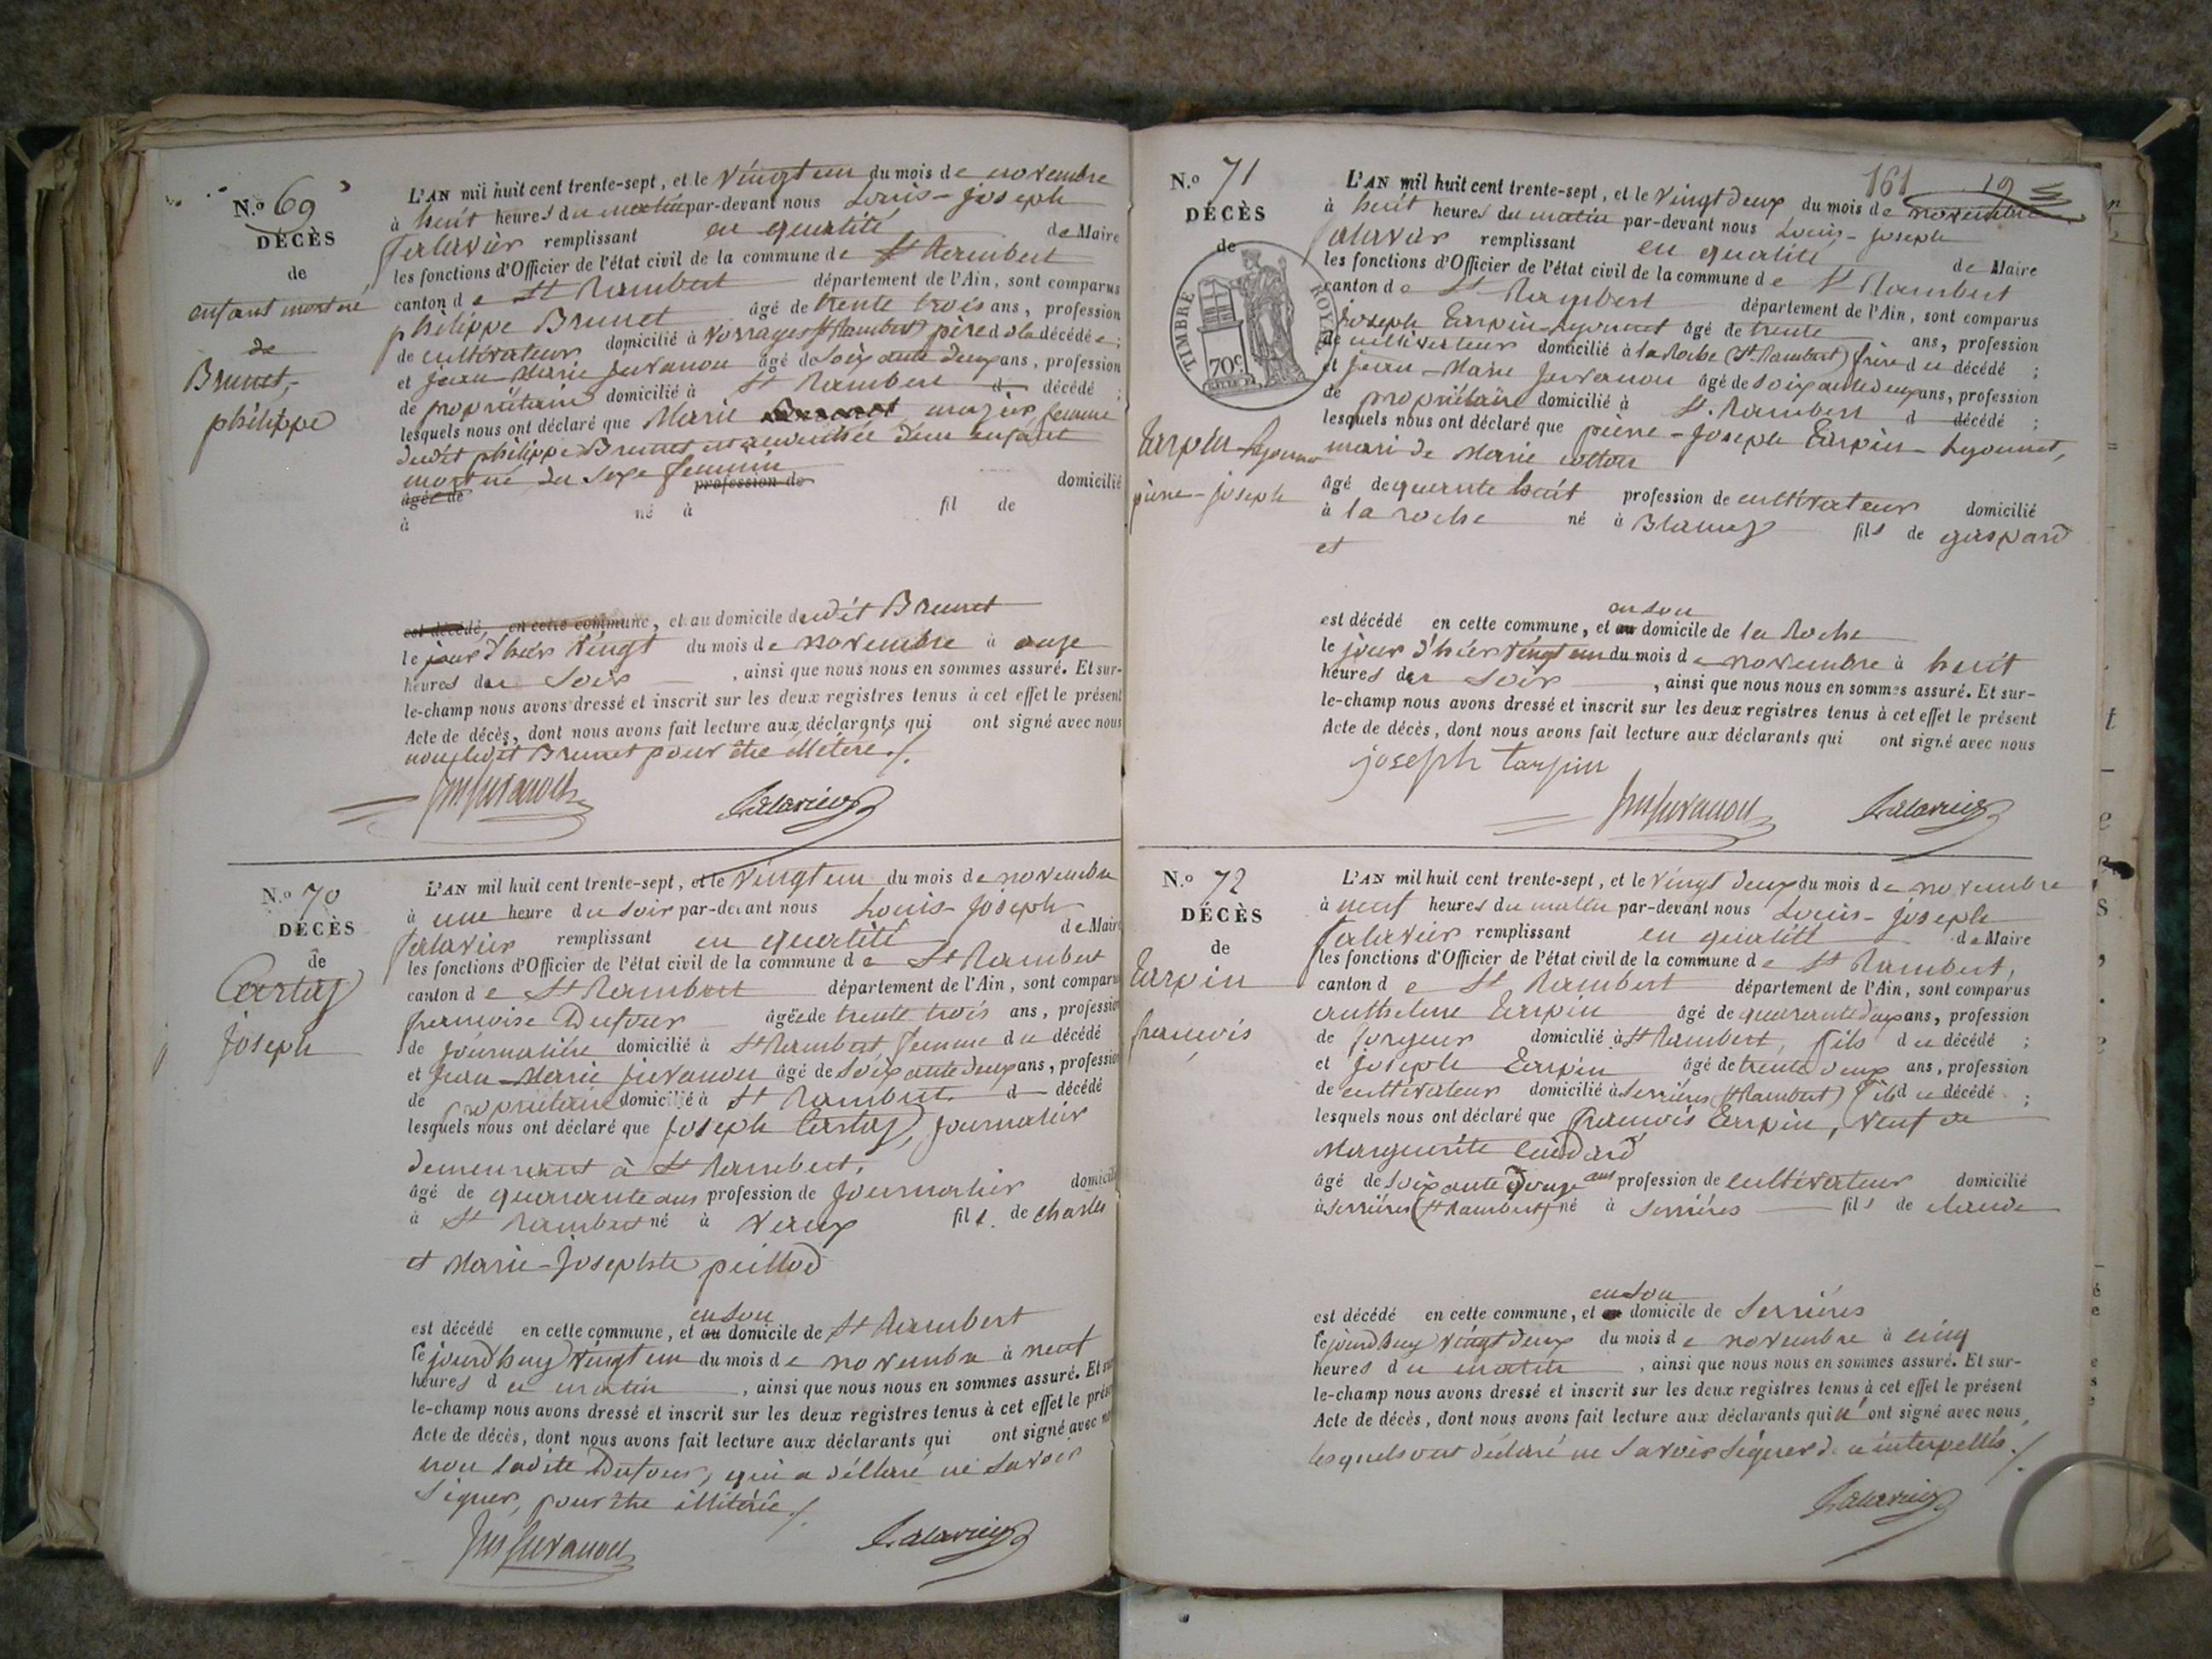 N.o 69
DÉCÈS
de
enfant mort né
de
Brunet,
philippe
L'AN mil huit cent trente-sept, et le vingt un du mois de novembre
à huit heures du matin par-devant nous Louis-Joseph
remplissant en qualité de Maire
les fonctions d'Officier de l'état civil de la commune de St Rambert
canton de St Rambert département de l'Ain, sont comparus
philippe Brunet âgé de trente trois ans, profession
de cultivateur domicilié à (St Rambert) père d décédé ;
et jean-Marie juvanon âgé de soixante deux ans, profession
de propriétaire domicilié à St Rambert d décédé ;
lesquels nous ont déclaré que Marie femme
dudit philippe Brunet est accouchée d'un enfant
mort né, du sexe feminin
âgée de profession de domicilié
à né à fil de
est décédé, en cette commune, et au domicile dudit Brunet
le jour d'hier vingt du mois de novembre à onze
heures du soir , ainsi que nous nous en sommes assuré. Et sur-
le-champ nous avons dressé et inscrit sur les deux registres tenus à cet effet le présent
Acte de décès, dont nous avons fait lecture aux déclarants qui ont signé avec nous
non ledit Brunet pour être illétéré ./.
jm juvanon
N.o 70
DÉCÈS
de
Cartaz
joseph
L'AN mil huit cent trente-sept, et le vingt un du mois de novembre
à une heure du soir par-devant nous Louis-Joseph
remplissant en qualité de Maire
les fonctions d'Officier de l'état civil de la commune de St Rambert
canton de St Rambert département de l'Ain, sont comparus
francoise Dufour âgée de trente trois ans, profession
de journalière domicilié à St Rambert, femme du décédé
et jean-Marie juvanon âgé de soixante deux ans, profession
de propriétaire domicilié à St Rambert d décédé
lesquels nous ont déclaré que joseph Cartaz, journalier
demeurant à St Rambert,
âgé de quarante ans profession de journalier domicilié
à St Rambert né à Vaux fils de charles
et Marie-josephte peillod
est décédé en cette commune, et au en son domicile de St Rambert
le jourd'huy vingt un du mois de novembre à neuf
heures du matin , ainsi que nous nous en sommes assuré. Et sur
le-champ nous avons dressé et inscrit sur les deux registres tenus à cet effet le présent
Acte de décès, dont nous avons fait lecture aux déclarants qui ont signé avec nous
non ladite Dufour, qui a déclaré ne savoir
signer, pour être illitérée ./.
jm juvanon
161 19
N.o 71
DÉCÈS
de
TIMBRE ROYAL
70c
Tarpin-Lyonnet
pierre-joseph
L'AN mil huit cent trente-sept, et le vingt deux du mois de novembre
à huit heures du matin par-devant nous Louis-joseph
remplissant en qualité de Maire
les fonctions d'Officier de l'état civil de la commune de St Rambert
canton de St Rambert département de l'Ain, sont comparus
joseph Tarpin-Lyonnet âgé de trente ans, profession
de cultivateur domicilié à la Roche (St Rambert) frère du décédé ;
et jean-Marie juvanon âgé de soixante deux ans, profession
de propriétaire domicilié à St. Rambert d décédé ;
lesquels nous ont déclaré que pierre-joseph Tarpin-Lyonnet,
mari de Marie
âgé de quarante huit profession de cultivateur domicilié
à la roche né à Blanaz fils de gaspard
et
est décédé en cette commune, et au en son domicile de la Roche
le jour d'hier vingt un du mois de novembre à huit
heures du soir , ainsi que nous nous en sommes assuré. Et sur-
le-champ nous avons dressé et inscrit sur les deux registres tenus à cet effet le présent
Acte de décès, dont nous avons fait lecture aux déclarants qui ont signé avec nous
joseph tarpin
jm juvanon
N.o 72
DÉCÈS
de
Tarpin
francois
L'AN mil huit cent trente-sept, et le vingt deux du mois de novembre
à neuf heures du matin par-devant nous Louis-joseph
remplissant en qualité de Maire
les fonctions d'Officier de l'état civil de la commune de St Rambert,
canton de St Rambert département de l'Ain, sont comparus
anthelme Tarpin âgé de quarante deux ans, profession
de forgeur domicilié à St Rambert, fils du décédé ;
et joseph Tarpin âgé de trente deux ans, profession
de cultivateur domicilié à serrières (St Rambert) fils du décédé ;
lesquels nous ont déclaré que francois Tarpin, veuf de
Marguerite
âgé de soixante douze ans profession de cultivateur domicilié
à serrières (St Rambert) né à serrières fils de claude
est décédé en cette commune, et au en son domicile de Serrières
le jourd'huy vingt deux du mois de novembre à cinq
heures du matin , ainsi que nous nous en sommes assuré. Et sur-
le-champ nous avons dressé et inscrit sur les deux registres tenus à cet effet le présent
Acte de décès, dont nous avons fait lecture aux déclarants qui n'ont signé avec nous,
lesquels ont déclaré ne savoir signer de ce interpellés ./.